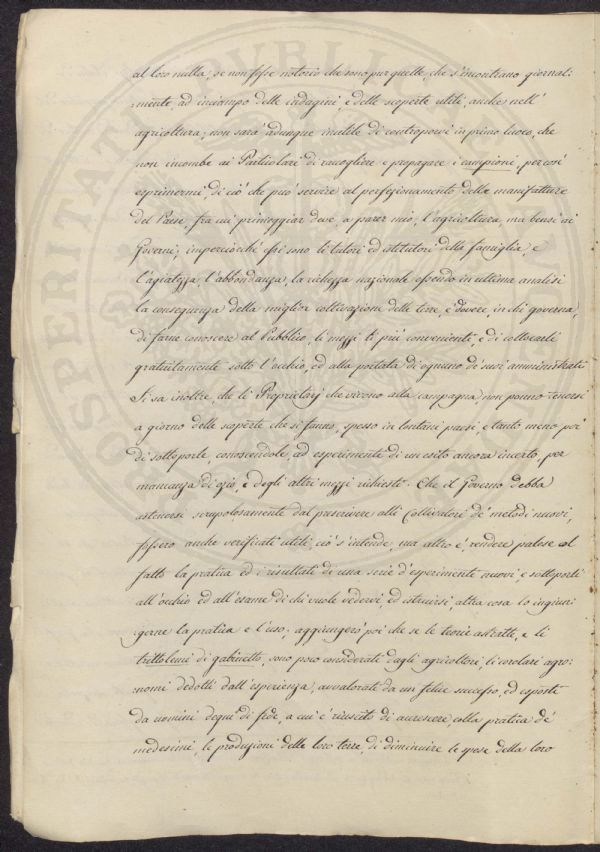 al loro nulla; se non fosse notorio che sono pur quelle, che s'incontrano giornal:
:mente, ad inciampo delle indagini, e delle scoperte utili, anche nell'
agricoltura; non sarà adunque inutile di contraporvi in primo luoco, che
non incombe ai Particolari di raccogliere e propagare i campioni, per così
esprimermi, di ciò che può servire al perfezionamento delle manifatture
del Paese, fra cui primeggiar deve, a parer mio, l'agricoltura, ma bensì ai
Governi; imperciocchè essi sono li tutori ed istitutori della famiglia, e
l'agiatezza, l'abbondanza, la richezza nazionale essendo in ultima analisi
la conseguenza della miglior coltivazione delle terre, è dovere, in chi governa,
di farne conoscere al Pubblico, li mezzi li più convenienti, e di collocarli
gratuitamente sotto l'occhio, ed alla portata di ognuno de' suoi amministrati
Si sa inoltre, che li Proprietarj che vivono alla campagna, non ponno tenersi
a giorno delle scoperte che si fanno, spesso in lontani paesi e tanto meno poi
di sottoporle, conoscendole, ad esperimente di un esito ancora incerto, per
mancanza di ozio, e degli altri mezzi richiesti. Che il Governo debba
astenersi scrupolosamente dal prescrivere alli Coltivatori de' metodi nuovi,
fossero anche verificati utili, ciò s'intende, ma altro è rendere palese col
fatto la pratica ed i risultati di una serie d'esperimente nuovi e sottoporli
all'occhio ed all'esame di chi vuole vedervi, ed istruirsi, altra cosa lo ingiun:
:gerne la pratica e l'uso; aggiungerò poi che se le teorie astratte, e li
trittolemi di gabinetto, sono poco considerate dagli agricoltori, li corolari agro:
:nomi dedotti dall'esperienza, avvalorate da un felice successo, ed esposti
da uomini degni di fede, a cui è riuscito di accrescere, colla pratica de'
medesimi, le produzioni delle loro terre, di diminuire le spese della loro